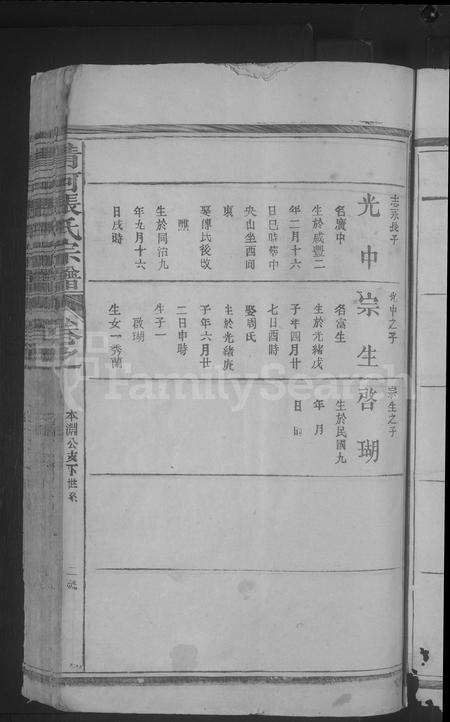 志永長子
光中
名廣中
生於咸豐二
年二月十六
日巳時葬中
央山坐酉向
東
娶傅氏後改
醮
生於同治九
年九月十六
日戌時
光中之子
宗生
名富生
生於光緒戊
子年四月廿
七日酉時
娶周氏
生於光緒庚
子年六月廿
二日申時
生子一
啟瑚
生女一秀蘭
宗生之子
啓瑚
生於民國九
年 月
日 時
清河張氏宗譜
卷之
本淵公支下世系
FamilySearch